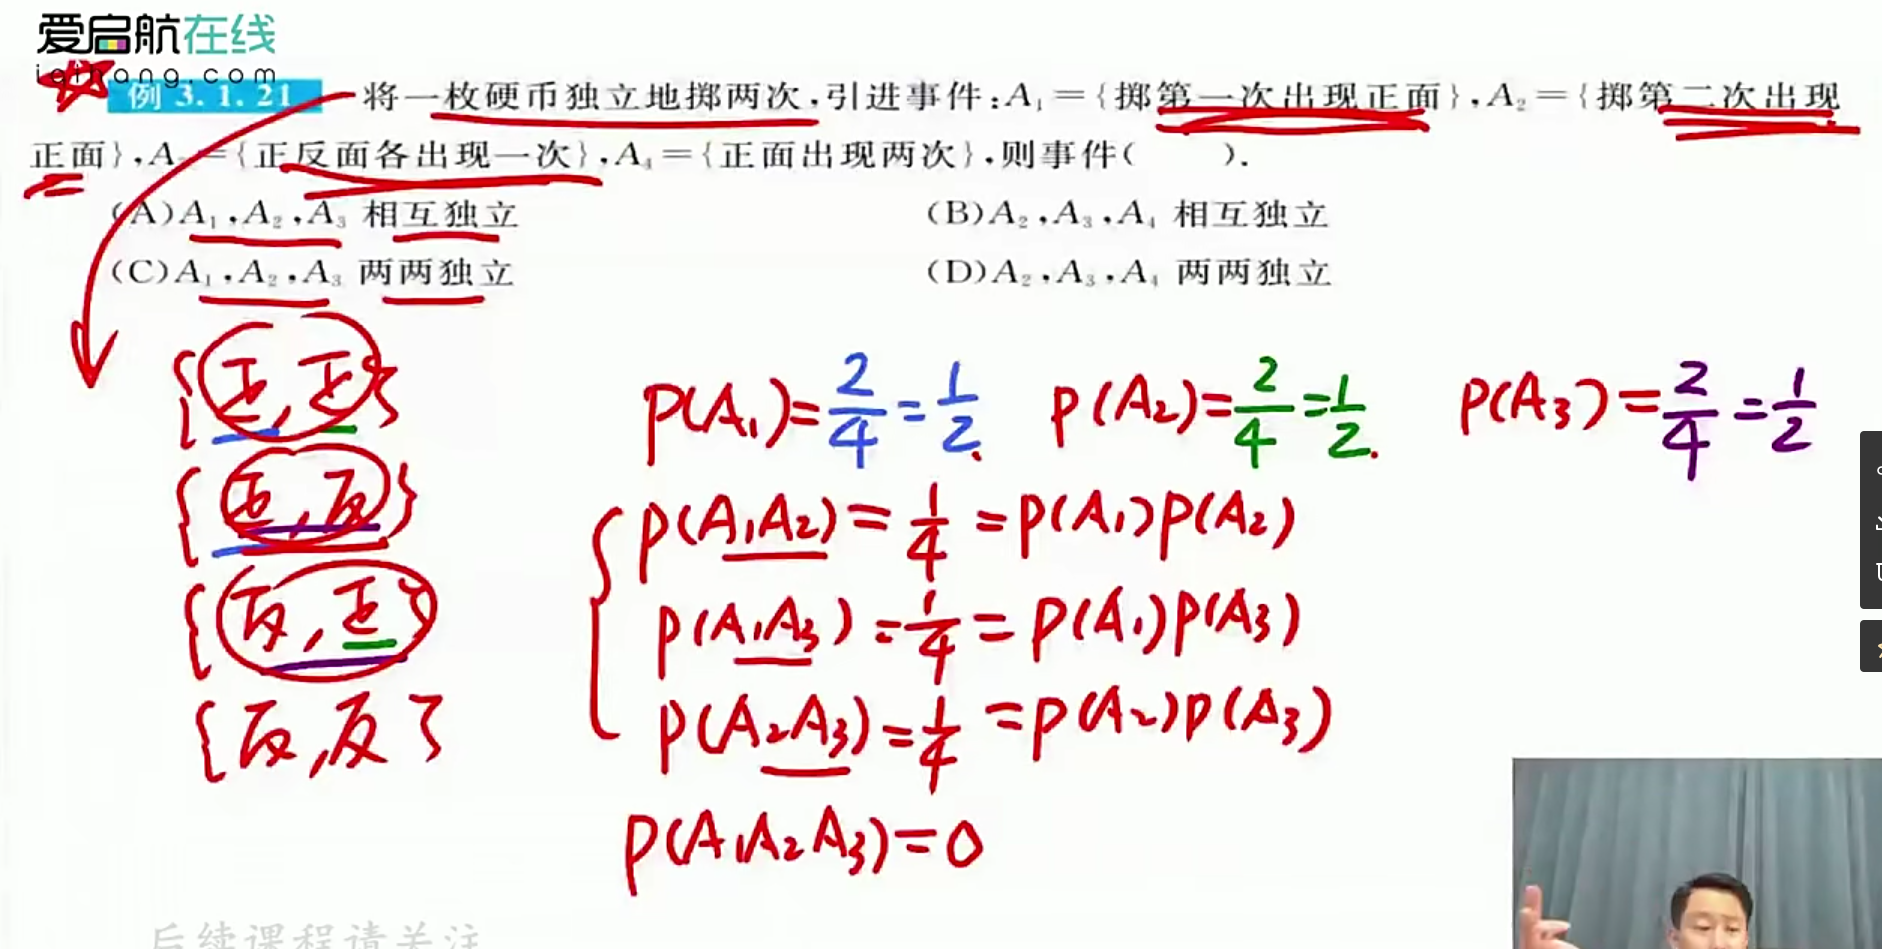 爱启航在线
iqihang.com
例 3.1.21 将一枚硬币独立地掷两次,引进事件:A₁={掷第一次出现正面},A₂={掷第二次出现
正面},A₃={正反面各出现一次},A₄={正面出现两次},则事件( ).
(A)A₁,A₂,A₃ 相互独立 (B)A₂,A₃,A₄ 相互独立
(C)A₁,A₂,A₃ 两两独立 (D)A₂,A₃,A₄ 两两独立
{正,正}
{正,反}
{反,正}
{反,反}
P(A₁)=2/4=1/2. P(A₂)=2/4=1/2. P(A₃)=2/4=1/2
P(A₁A₂)=1/4=P(A₁)P(A₂)
P(A₁A₃)=1/4=P(A₁)P(A₃)
P(A₂A₃)=1/4=P(A₂)P(A₃)
P(A₁A₂A₃)=0
后续课程请关注